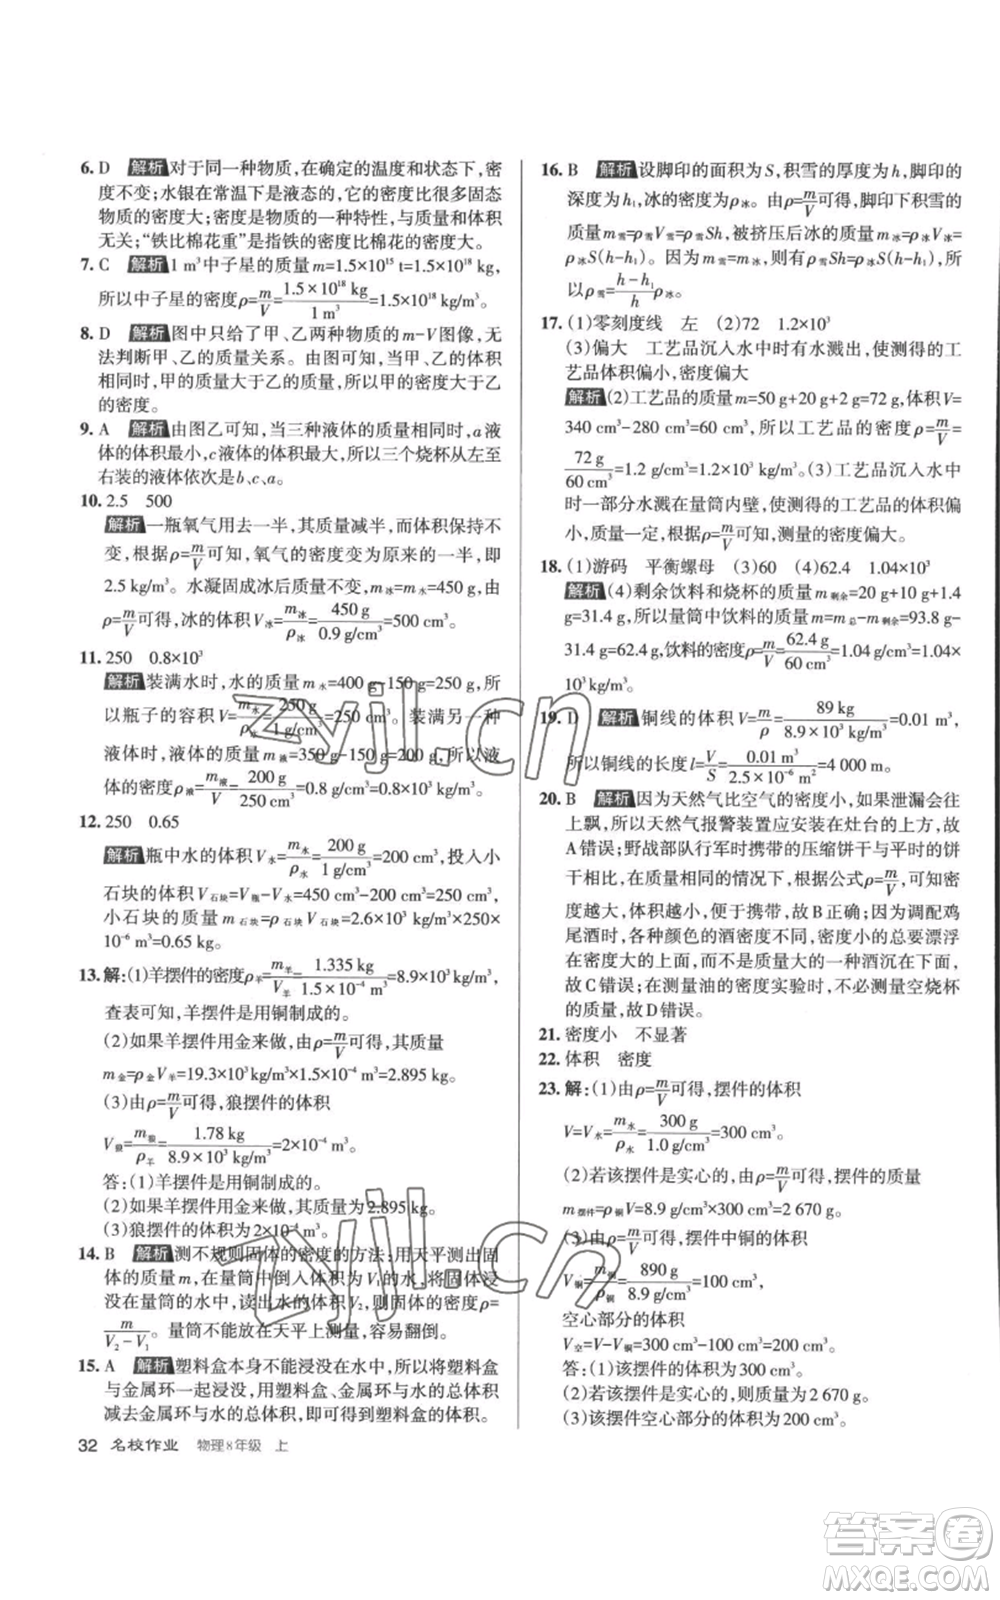 6. D 解析 对于同一种物质,在确定的温度和状态下,密
度不变;水银在常温下是液态的,它的密度比很多固态
物质的密度大;密度是物质的一种特性,与质量和体积
无关;“铁比棉花重”是指铁的密度比棉花的密度大。
7. C 解析 1 m³中子星的质量m=1.5×10¹⁵ t=1.5×10¹⁸ kg,
所以中子星的密度ρ=m/V=1.5×10¹⁸ kg/1 m³=1.5×10¹⁸ kg/m³。
8. D 解析 图中只给了甲、乙两种物质的m-V图像,无
法判断甲、乙的质量关系。由图可知,当甲、乙的体积
相同时,甲的质量大于乙的质量,所以甲的密度大于乙
的密度。
9. A 解析 由图乙可知,当三种液体的质量相同时,a液
体的体积最小,c液体的体积最大,所以三个烧杯从左至
右装的液体依次是b、c、a。
10. 2.5 500
解析 一瓶氧气用去一半,其质量减半,而体积保持不
变,根据ρ=m/V可知,氧气的密度变为原来的一半,即
2.5 kg/m³。水凝固成冰后质量不变,m冰=m水=450 g,由
ρ=m/V可得,V冰=m冰/ρ冰=450 g/0.9 g/cm³=500 cm³。
11. 250 0.8×10³
解析 装满水时,水的质量m水=400 g-150 g=250 g,所
以瓶子的容积V=m水/ρ水=250 g/1 g/cm³=250 cm³。装满另一种
液体时,液体的质量m液=350 g-150 g=200 g,所以液
体的密度ρ液=m液/V=200 g/250 cm³=0.8 g/cm³=0.8×10³ kg/m³。
12. 250 0.65
解析 瓶中水的体积V水=m水/ρ水=200 g/1 g/cm³=200 cm³,投入小
石块的体积V石块=V总-V水=450 cm³-200 cm³=250 cm³,
小石块的质量m石块=ρ石块V石块=2.6×10³ kg/m³×250×
10⁻⁶ m³=0.65 kg。
13. 解:(1)羊摆件的密度ρ羊=m羊/V羊=1.335 kg/1.5×10⁻⁴ m³=8.9×10³ kg/m³,
查表可知,羊摆件是用铜制成的。
(2)如果羊摆件用金来做,由ρ=m/V可得,其质量
m金=ρ金V羊=19.3×10³ kg/m³×1.5×10⁻⁴ m³=2.895 kg。
(3)由ρ=m/V可得,狼摆件的体积
V狼=m狼/ρ羊=1.78 kg/8.9×10³ kg/m³=2×10⁻⁴ m³。
答:(1)羊摆件是用铜制成的。
(2)如果羊摆件用金来做,其质量为2.895 kg。
(3)狼摆件的体积为2×10⁻⁴ m³。
14. B 解析 测不规则固体的密度的方法:用天平测出固
体的质量m,在量筒中倒入体积为V₁的水,将固体浸
没在量筒的水中,读出水的总体积V₂,则固体的密度ρ=
m/V₂-V₁。量筒不能放在天平上测量,容易翻倒。
15. A 解析 塑料盒本身不能浸没在水中,所以将塑料盒
与金属环一起浸没,用塑料盒、金属环与水的总体积
减去金属环与水的总体积,即可得到塑料盒的体积。
32 名校作业 物理8年级 上
16. B 解析 设脚印的面积为S,积雪的厚度为h,脚印的
深度为h₁,冰的密度为ρ冰。由ρ=m/V可得,脚印下积雪的
质量m雪=ρ雪V雪=ρ雪Sh,被挤压后冰的质量m冰=ρ冰V冰=
ρ冰S(h-h₁)。因为m雪=m冰,则有ρ雪Sh=ρ冰S(h-h₁),所
以ρ雪=h-h₁/hρ冰。
17. (1)零刻度线 左 (2)72 1.2×10³
(3)偏大 工艺品沉入水中时有水溅出,使测得的工
艺品体积偏小,密度偏大
解析 (2)工艺品的质量m=50 g+20 g+2 g=72 g,体积V=
340 cm³-280 cm³=60 cm³,所以工艺品的密度ρ=m/V=
72 g/60 cm³=1.2 g/cm³=1.2×10³ kg/m³。(3)工艺品沉入水中
时一部分水溅在量筒内壁,使测得的工艺品的体积偏
小,质量一定,根据ρ=m/V可知,测量的密度偏大。
18. (1)游码 平衡螺母 (3)60 (4)62.4 1.04×10³
解析 (4)剩余饮料和烧杯的质量m剩余=20 g+10 g+1.4
g=31.4 g,所以量筒中饮料的质量m=m总-m剩余=93.8 g-
31.4 g=62.4 g,饮料的密度ρ=m/V=62.4 g/60 cm³=1.04 g/cm³=1.04×
10³ kg/m³。
19. D 解析 铜线的体积V=m/ρ=89 kg/8.9×10³ kg/m³=0.01 m³,
所以铜线的长度l=V/S=0.01 m³/2.5×10⁻⁶ m²=4 000 m。
20. B 解析 因为天然气比空气的密度小,如果泄漏会往
上飘,所以天然气报警装置应安装在灶台的上方,故
A错误;野战部队行军时携带的压缩饼干与平时的饼
干相比,质量相同时,体积较小,根据公式ρ=m/V,可知密
度越大,体积越小,便于携带,故B正确;因为调配鸡
尾酒时,各种颜色的酒密度不同,密度小的总要漂浮
在密度大的上面,而不是质量大的一种酒沉在下面,
故C错误;在测量油的密度实验时,不必测量空烧杯
的质量,故D错误。
21. 密度小 不显著
22. 体积 密度
23. 解:(1)由ρ=m/V可得,摆件的体积
V=V水=m水/ρ水=300 g/1.0 g/cm³=300 cm³。
(2)若该摆件是实心的,由ρ=m/V可得,摆件的质量
m摆件=ρ铜V=8.9 g/cm³×300 cm³=2 670 g。
(3)由ρ=m/V可得,摆件中铜的体积
V铜=m铜/ρ铜=890 g/8.9 g/cm³=100 cm³,
空心部分的体积
V空=V-V铜=300 cm³-100 cm³=200 cm³。
答:(1)该摆件的体积为300 cm³。
(2)若该摆件是实心的,则质量为2 670 g。
(3)该摆件空心部分的体积为200 cm³。
zyjl.cn
zyjl.cn
答案卷
MXQE.COM